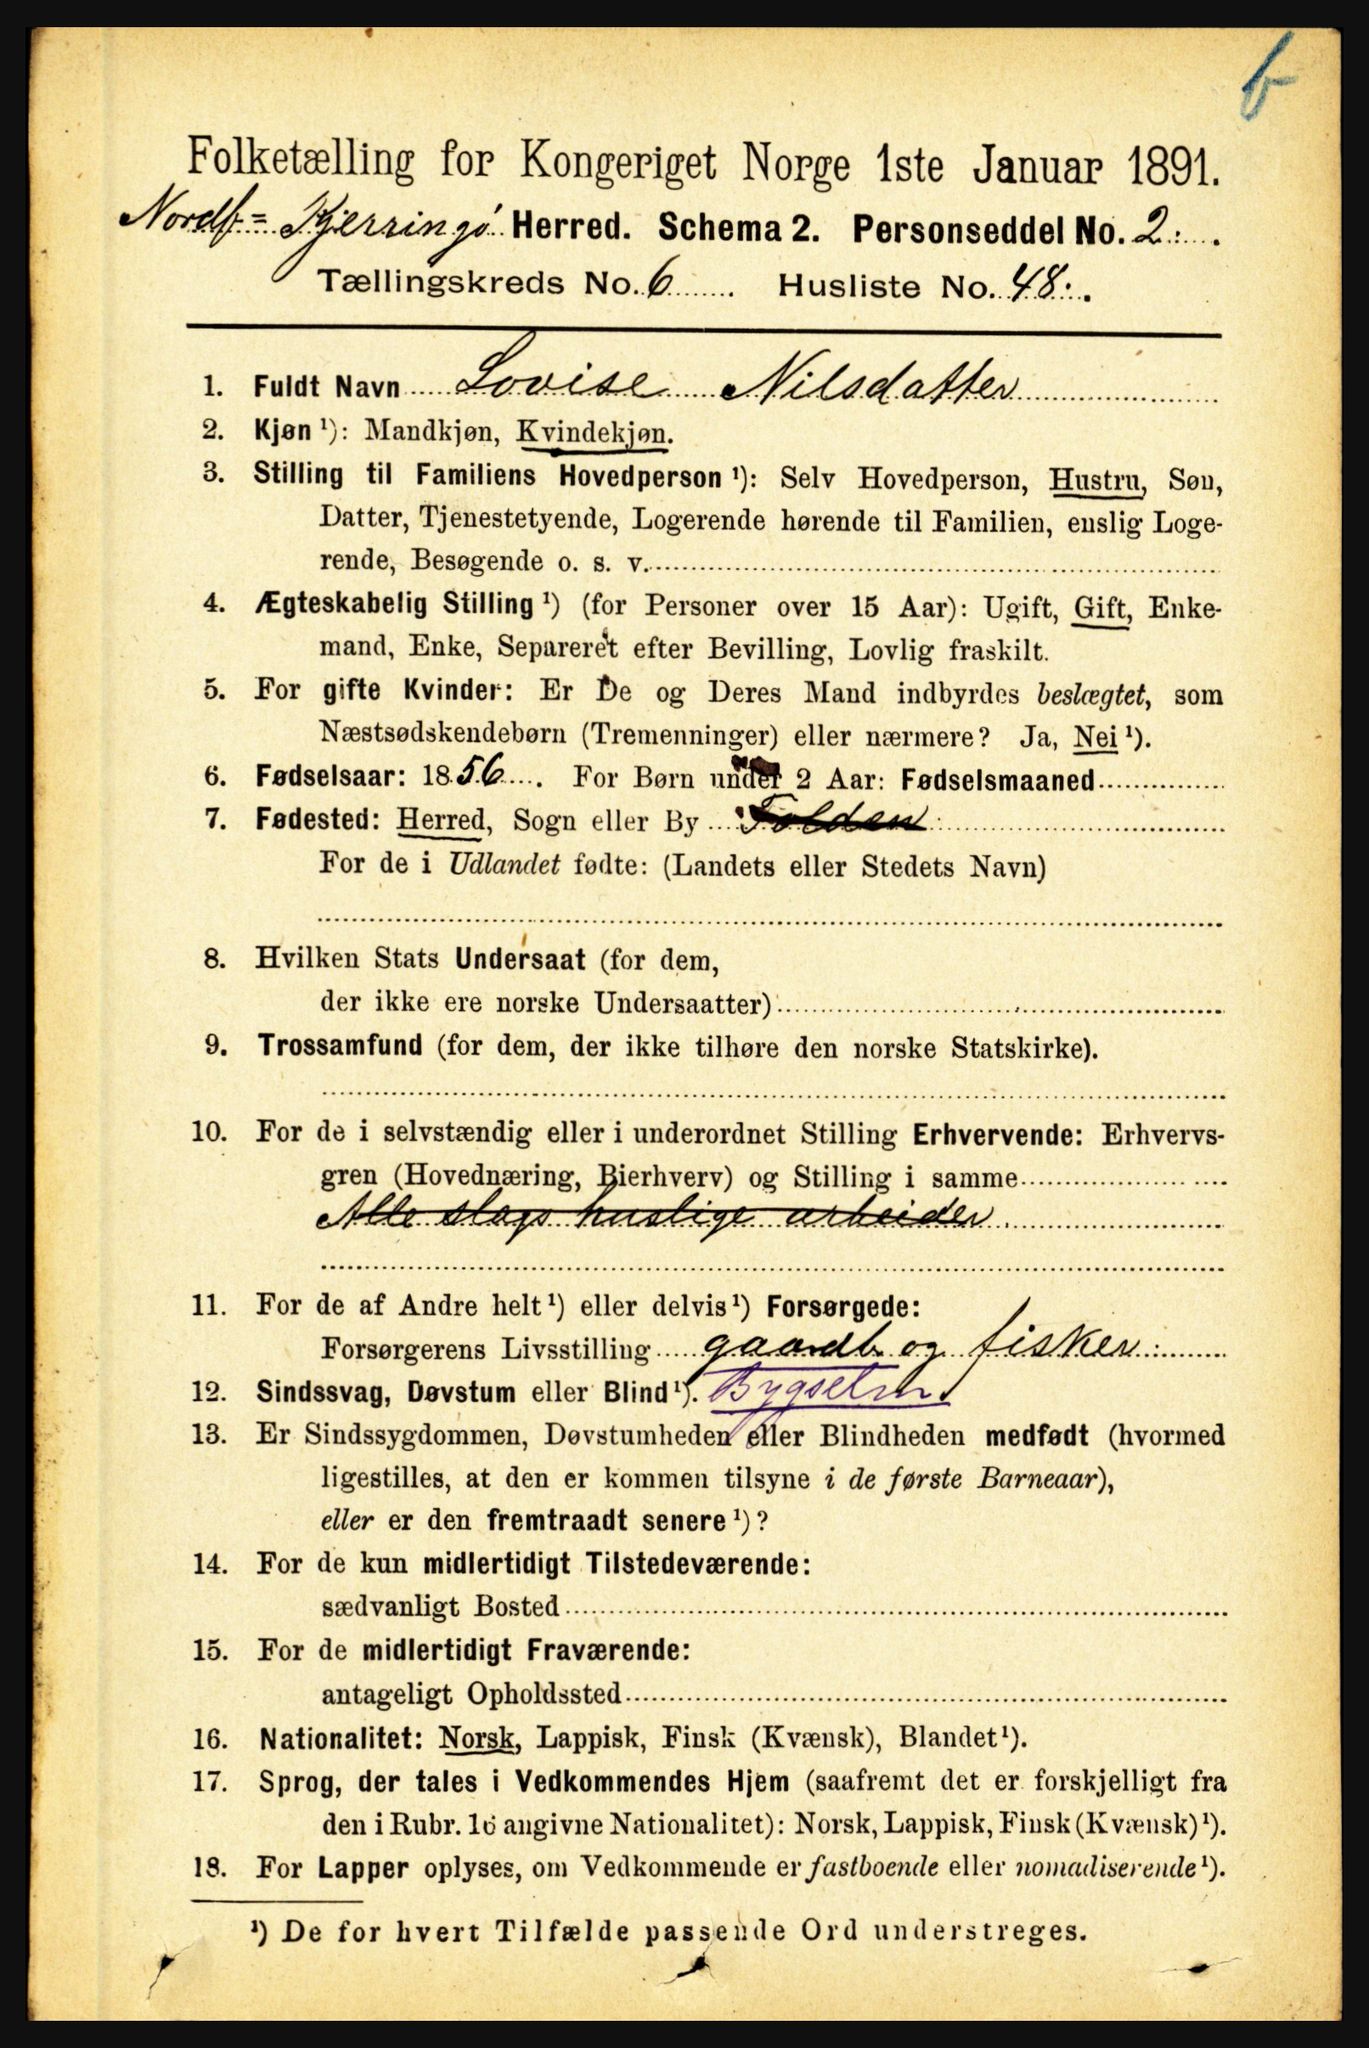 b
Folketælling for Kongeriget Norge 1ste Januar 1891.
Nordf= Kjerringø Herred. Schema 2. Personseddel No. 2.
Tællingskreds No. 6 Husliste No. 48.
1. Fuldt Navn Lovise Nilsdatter
2. Kjøn ¹): Mandkjøn, Kvindekjøn.
3. Stilling til Familiens Hovedperson ¹): Selv Hovedperson, Hustru, Søn,
Datter, Tjenestetyende, Logerende hørende til Familien, enslig Loge-
rende, Besøgende o. s. v.
4. Ægteskabelig Stilling ¹) (for Personer over 15 Aar): Ugift, Gift, Enke-
mand, Enke, Separeret efter Bevilling, Lovlig fraskilt.
5. For gifte Kvinder: Er De og Deres Mand indbyrdes beslægtet, som
Næstsødskendebørn (Tremenninger) eller nærmere? Ja, Nei ¹).
6. Fødselsaar: 1856. For Børn under 2 Aar: Fødselsmaaned
7. Fødested: Herred, Sogn eller By Folden
For de i Udlandet fødte: (Landets eller Stedets Navn)
8. Hvilken Stats Undersaat (for dem,
der ikke ere norske Undersaatter)
9. Trossamfund (for dem, der ikke tilhøre den norske Statskirke).
10. For de i selvstændig eller i underordnet Stilling Erhvervende: Erhvervs-
gren (Hovednæring, Bierhverv) og Stilling i samme
Alle slags huslige arbeider
11. For de af Andre helt ¹) eller delvis ¹) Forsørgede:
Forsørgerens Livsstilling gaardb. og fisker
12. Sindssvag, Døvstum eller Blind ¹). Bygselm.
13. Er Sindssygdommen, Døvstumheden eller Blindheden medfødt (hvormed
ligestilles, at den er kommen tilsyne i de første Barneaar),
eller er den fremtraadt senere ¹)?
14. For de kun midlertidigt Tilstedeværende:
sædvanligt Bosted
15. For de midlertidigt Fraværende:
antageligt Opholdssted
16. Nationalitet: Norsk, Lappisk, Finsk (Kvænsk), Blandet ¹).
17. Sprog, der tales i Vedkommendes Hjem (saafremt det er forskjelligt fra
den i Rubr. 16 angivne Nationalitet): Norsk, Lappisk, Finsk (Kvænsk) ¹).
18. For Lapper oplyses, om Vedkommende er fastboende eller nomadiserende ¹).
¹) De for hvert Tilfælde passende Ord understreges.